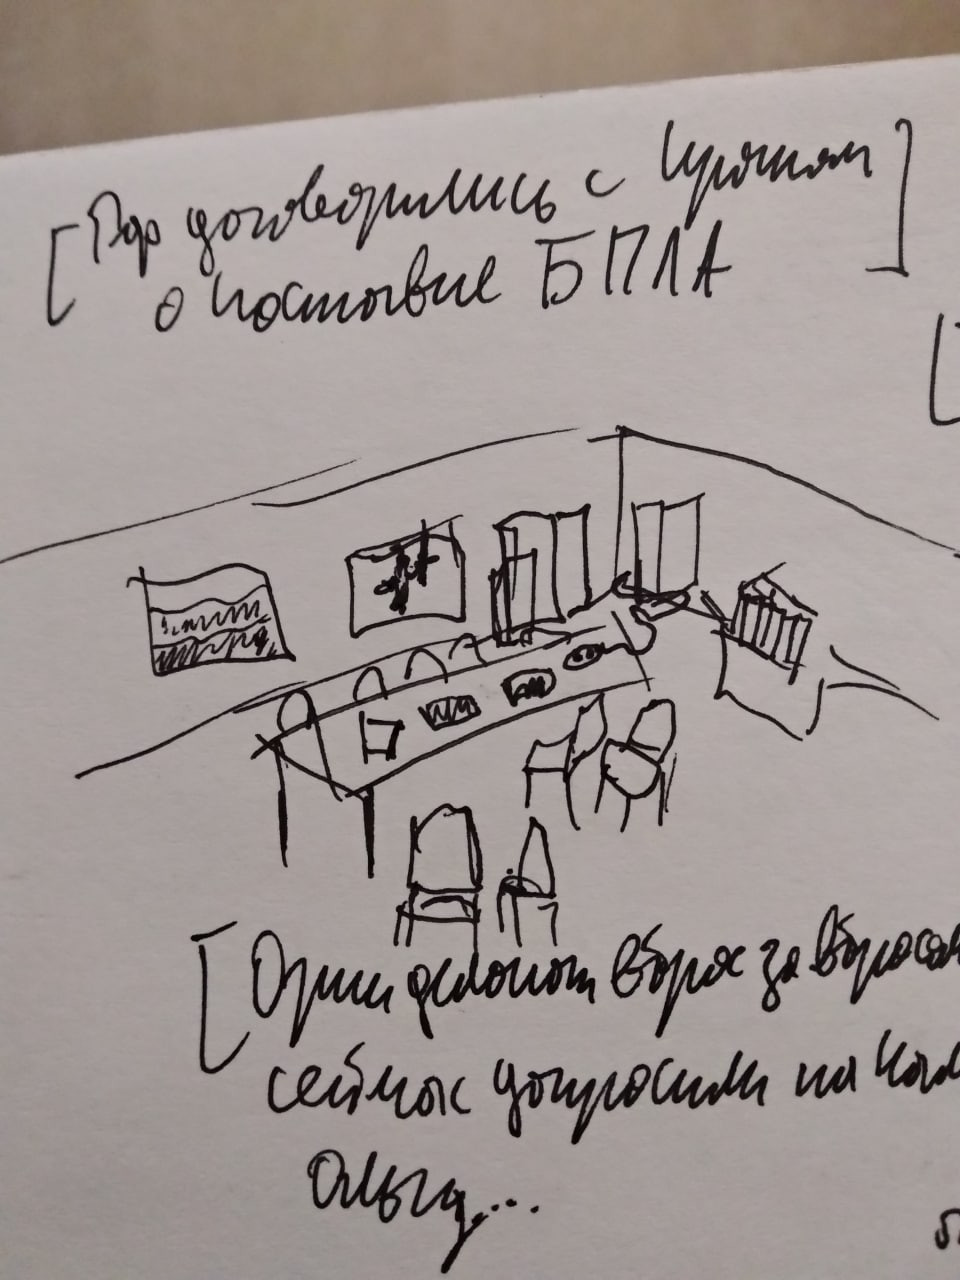 договорились с
о поставке БПЛА
Орки делают вброс за вбросом
сейчас допросили на
Ольгу...